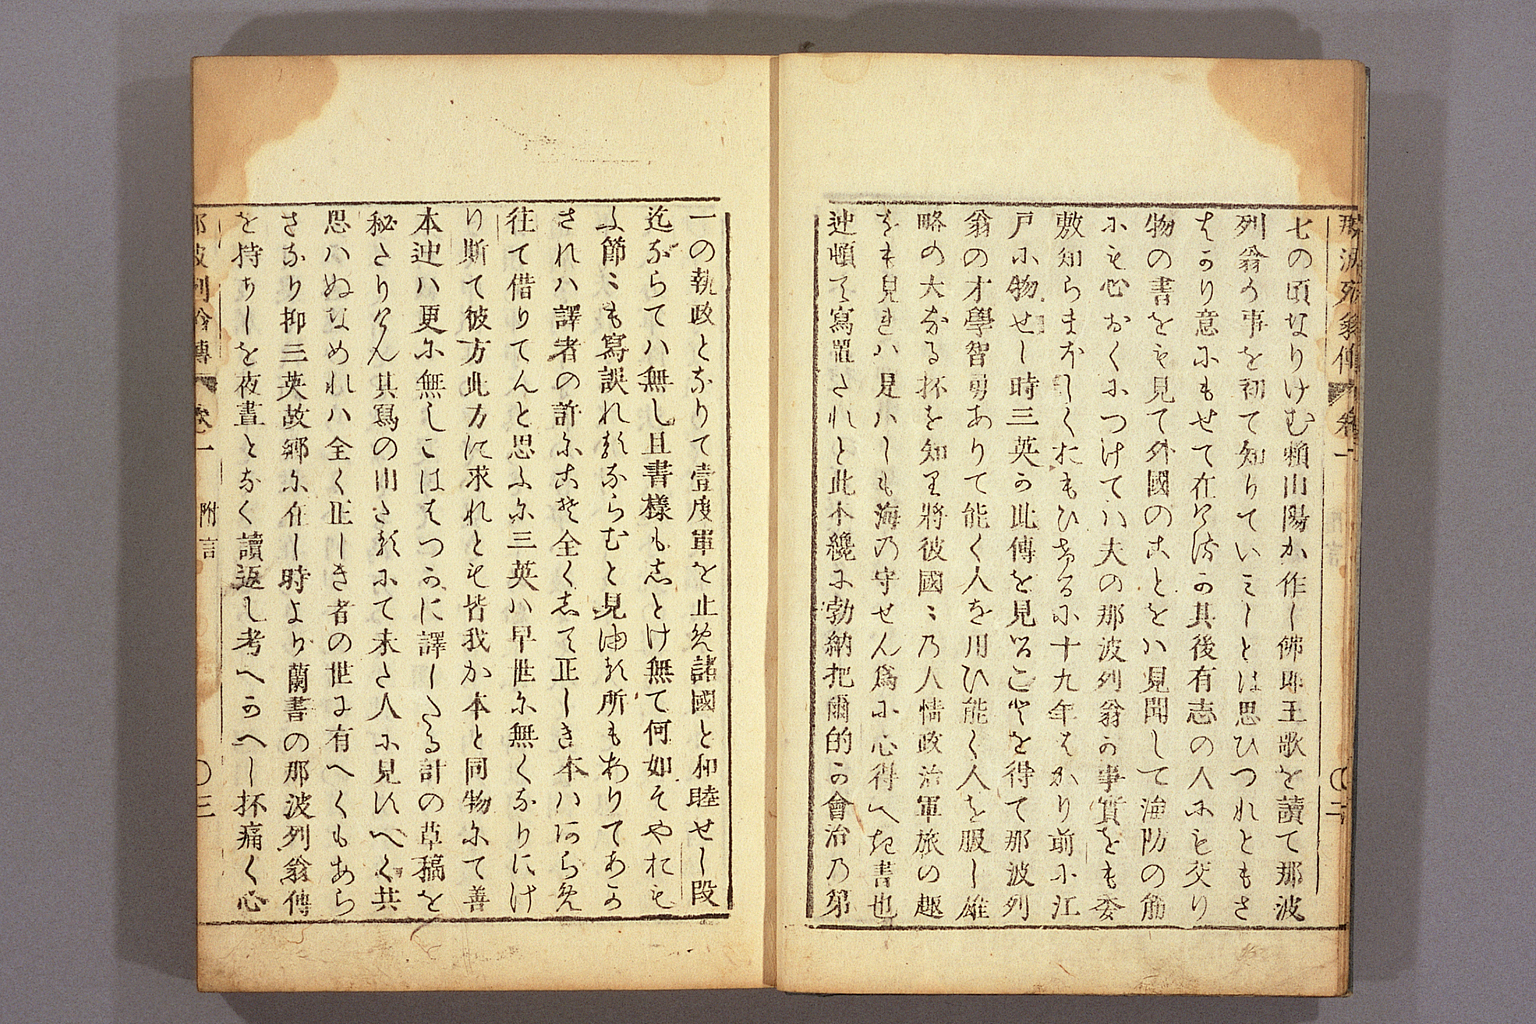 那波列翁傳 卷一 〇二
七の頃なりけむ頼山陽か作し佛郎王歌を讀て那波
列翁の事を初て知りていミしとは思ひつれともさ
はかり意にもせて在けるか其後有志の人にも交り
物の書をも見て外國のことをハ見聞して海防の筋
にも心おくにつけてハ夫の那波列翁か事實をも委
敷知らまほしくおもひけるに十九年はかり前に江
戸に物せし時三英か此傳を見ることを得て那波列
翁の才學智勇ありて能く人を用ひ能く人を服し雄
略の大なる杯を知り將彼國〻の人情政治軍旅の趣
をも見れハ是ハしも海の守せん爲に心得へき書也
迚頓て寫置たれと此本纔に勃納把爾的の會治の第
一の執政となりて壹度軍を止免諸國と和睦せし段
迄ならてハ無し且書樣もしとけ無て何如そやおも
ふ節〻も寫誤れるならむと見ゆる所もありてあか
されハ譯者の許にこそ全くして正しき本ハあらめ
往て借りてんと思ふに三英ハ早世に無くなりにけ
り斯て彼方此方に求れとも皆我か本と同物にて善
本迚ハ更に無しこははつかに譯したる計の草稿を
秘さりけん其寫の出たるにて未た人に見すへく共
思ハぬなめれハ全く正しき者の世に有へくもあら
さなり抑三英故郷に在し時より蘭書の那波列翁傳
を持ちしを夜晝となく讀返し考へかへし杯痛く心
那波列翁傳 卷一 附言 〇三